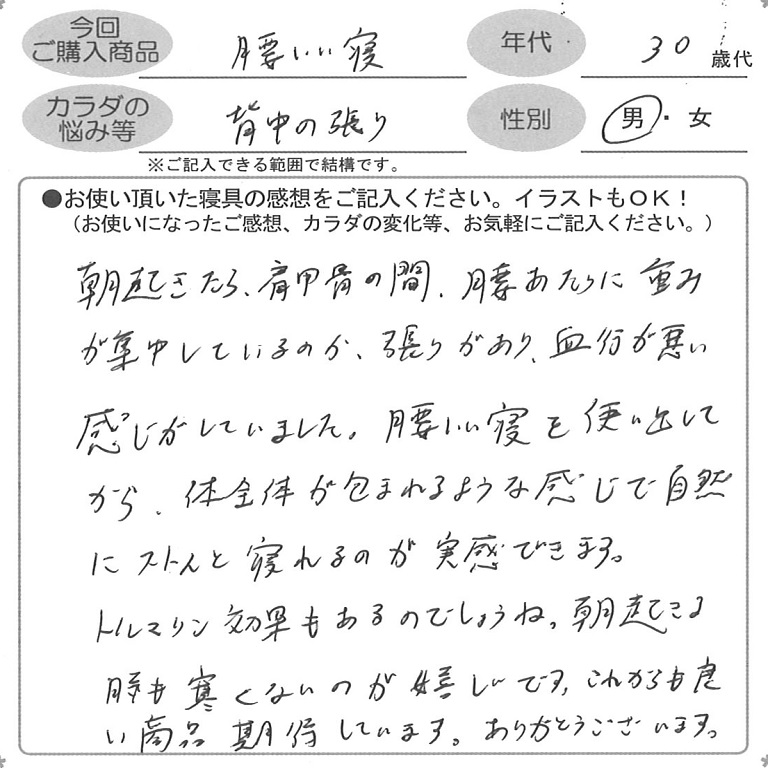 今回
ご購入商品
腰いい寝
年代
30歳代
カラダの
悩み等
背中の張り
性別
男・女
※ご記入できる範囲で結構です。
●お使い頂いた寝具の感想をご記入ください。イラストもOK！
（お使いになったご感想、カラダの変化等、お気軽にご記入ください。）
朝起きたら、肩甲骨の間、腰あたりに重み
が集中しているのか、張りがあり、血行が悪い
感じがしていました。腰いい寝を使い出して
から、体全体が包まれるような感じで自然
にストんと寝れるのが実感できます。
トルマリン効果もあるのでしょうね。朝起きる
時も寒くないのが嬉しいです。これからも良
い商品期待しています。ありがとうございます。